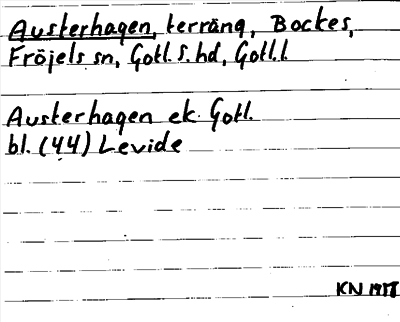 Austerhagen, terräng, Bockes,
Fröjels sn, Gotl. S. hd, Gotl. l.
Austerhagen ek. Gotl.
bl. (44) Levide
KN